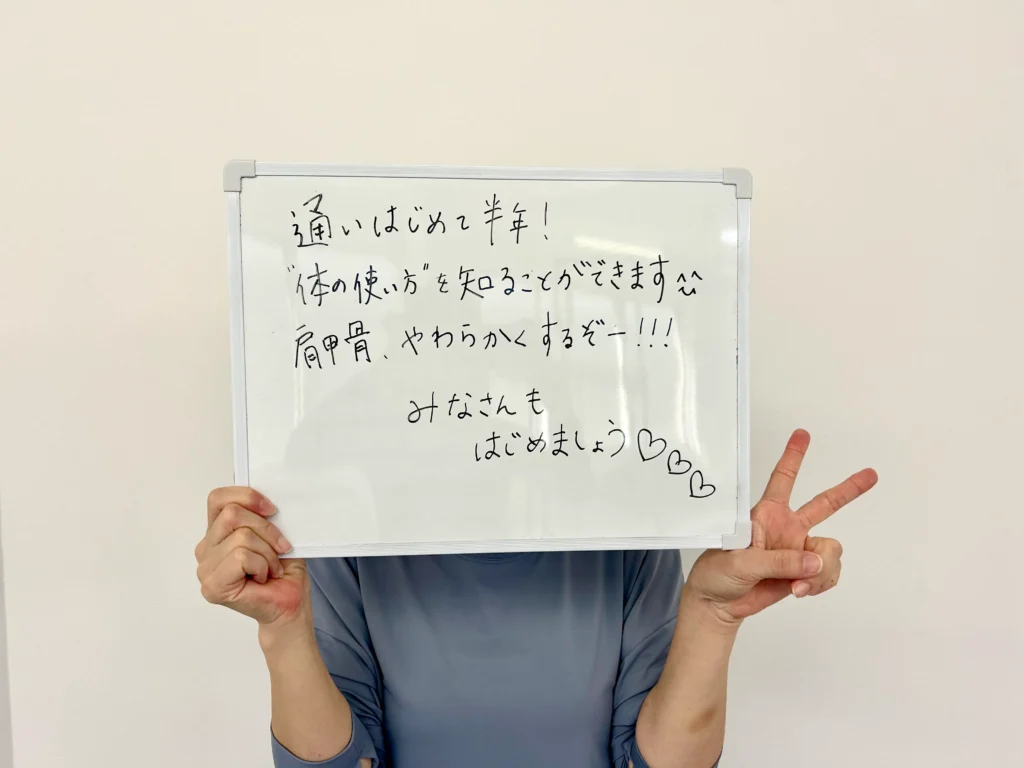 通いはじめて半年!
"体の使い方"を知ることができます^^
肩甲骨、やわらかくするぞー!!!
みなさんも
はじめましょう♡♡♡